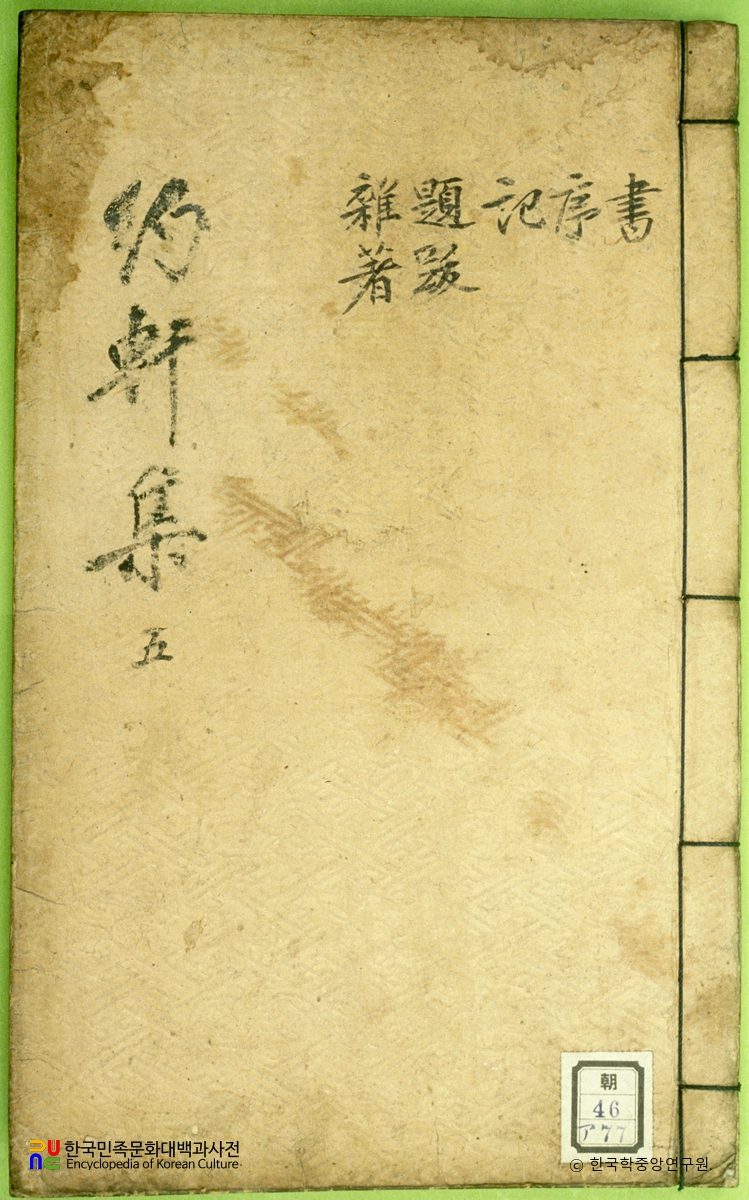 書
序
記
題跋
雜著
約軒集 五
朝
46
ア77
한국민족문화대백과사전
Encyclopedia of Korean Culture
© 한국학중앙연구원